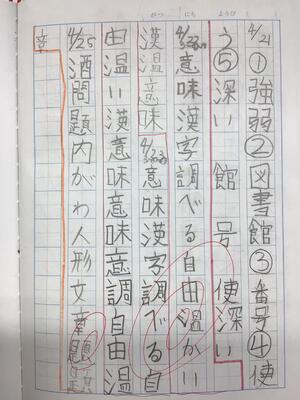 がつ にち ようび
4/21 ①強弱②図書館③番号④使
う⑤深い 館 号 使深い
4/22 意味漢字調べる自由温かい
漢温意味 4/23 意味漢字調べる自
由温い漢意味意味意調自由温
4/25 酒問題内がわ人形文章題
章